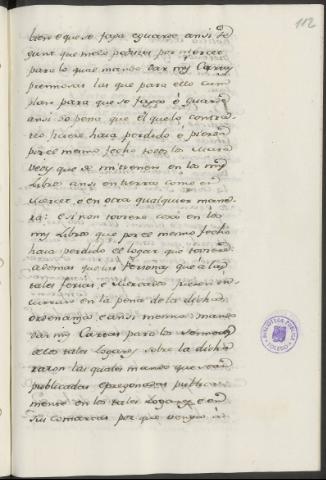 112
bien e que se faga e guarde ansi se
gunt que me lo pedistes por merced
para lo qual mando dar mis Cartas
premiosas las que para ello cum
plan para que se faga e guarde
ansi so pena que el que lo contra
rio ficiere haia perdido e pierda
por el mesmo fecho todos los mara
vedis que de mi tienen en los mis
Libros ansi en tierra como en
merced, e en otra qualquier mane
ra: E si non toviere cosa en los
mis Libros que por el mesmo fecho
haia perdido el logar que toviere
ademas que las Personas que a las
tales ferias e Mercados fueren in
curran en la pena de la dicha
ordenanza e ansi mesmo mando
dar mis Cartas para los
de los tales Logares sobre la dicha
razon las quales mando que sean
publicadas e pregonadas publica
mente en los tales Logares e en
sus comarcas por que venga a
BIBLIOTECA PUBLICA
TOLEDO